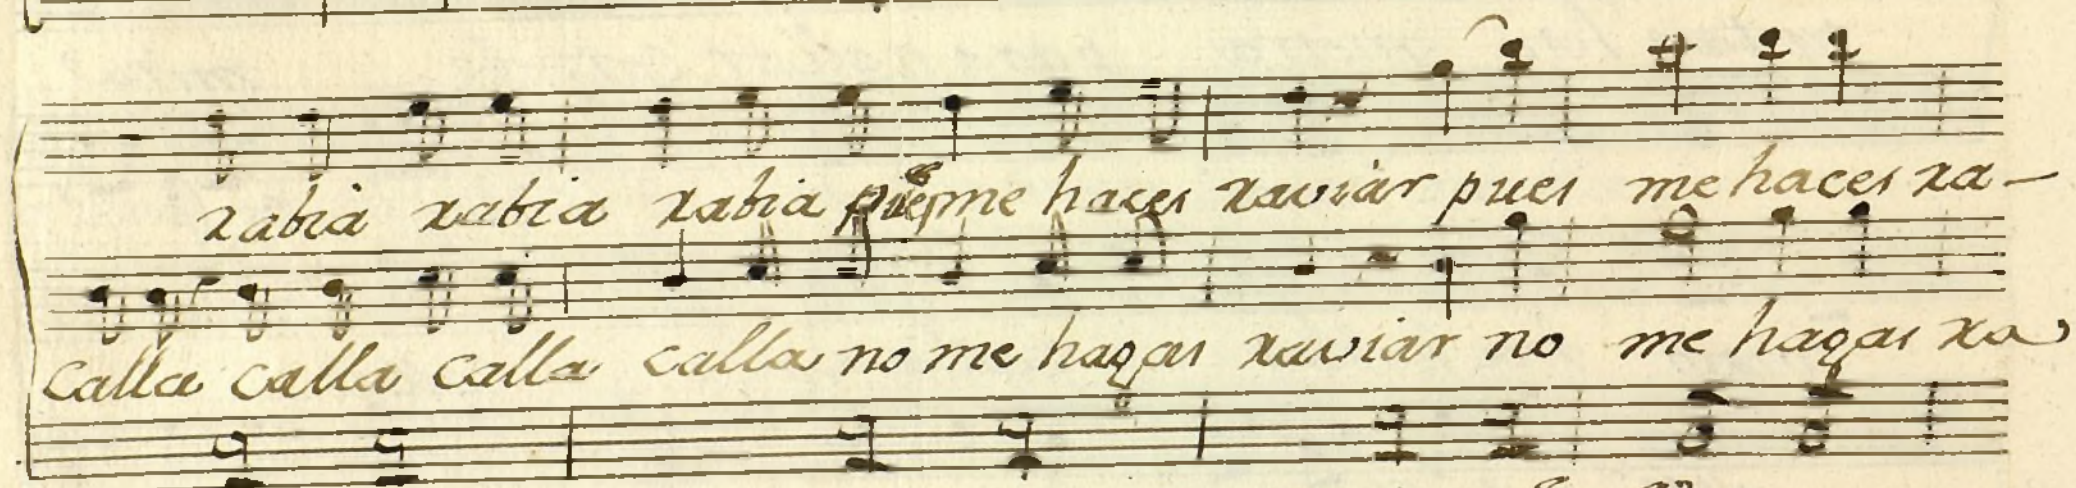 rabia rabia rabia pues me haces raviar pues me haces ra-
calla calla calla calla no me hagas raviar no me hagas ra